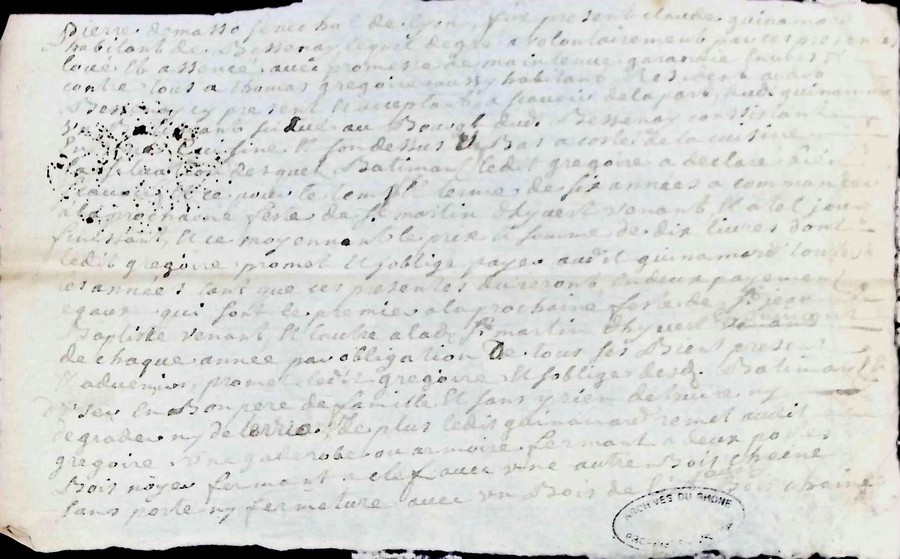 pierre de masso senechal de lyon, fut present claude guinamard
habitant de Bessenay, lequel de gré a volontairement par ces presentes
loué et assencé avec promesse de maintenue garandie envers et
contre tous a thomas gregoire aussy habitant
Bessenay cy present et acceptant, a scavoir de la part dud. guinamard
situé au Bourg dud. Bessenay consistant
cuisine et son dessus et Bas a costé de la cuisine
desquel Batiman ledit gregoire a declaré
et ce pour le temps et terme de six années a commancer
a la prochaine feste de st martin d'hyvert venant, et a tel jour
finissant, et ce moyennant le prix et somme de dix livres dont
ledit gregoire promet et s'oblige payer audit guinamard toutes
les années tant que ces presentes dureront, en deux payements
egaux qui sont le premier a la prochaine feste de st jean
Baptiste venant, et l'autre a lad. st martin d'hyvert
de chaque année par obligation de tous ses Bient present
et advenir, promet ledit gregoire et s'oblige desd. Batiman
d'user en Bon pere de famille et sans y rien detruire ny
degrader ny de plus ledit guinamard remet audit
gregoire une gaderobe ou armoire fermant a deux portes
Bois noyer fermant a clef avec une autre Bois cheene
sans porte ny fermeture avec un Bois de Bois cheine
ARCHIVES DU RHONE